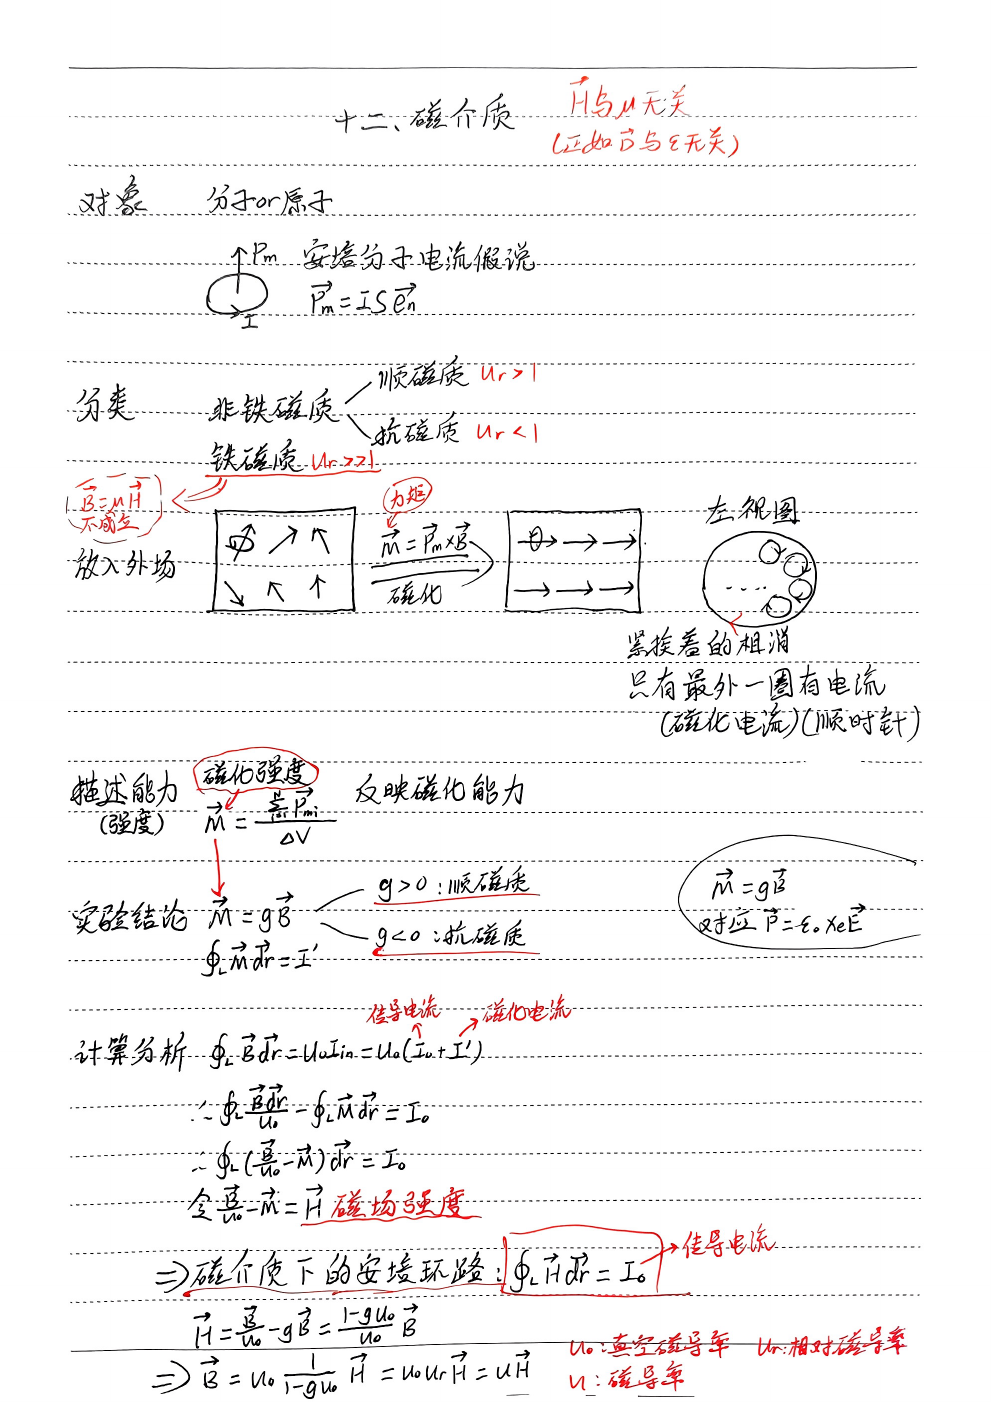 十二、磁介质
H⃗与μ无关
(正如D⃗与ε无关)
对象 分子or原子
Pm 安培分子电流假说
I
P⃗m = IS e⃗n
分类 非铁磁质
顺磁质 ur>1
抗磁质 ur<1
铁磁质 ur>>1
B⃗=μH⃗
不成立
放入外场
力矩
m⃗ = P⃗m×B⃗
磁化
左视图
....
紧挨着的相消
只有最外一圈有电流
(磁化电流)(顺时针)
描述能力
(强度)
磁化强度
M⃗ = Σ P⃗mi / ΔV
反映磁化能力
实验结论 M⃗ = gB⃗
g>0:顺磁质
g<0:抗磁质
∮L M⃗ dr⃗ = I'
M⃗ = gB⃗
对应 P⃗ = ε₀ χe E⃗
传导电流 磁化电流
计算分析 ∮L B⃗ dr⃗ = u₀Iin = u₀(I₀+I')
∴ ∮L B⃗dr⃗/u₀ - ∮L M⃗ dr⃗ = I₀
∴ ∮L (B⃗/u₀ - M⃗) dr⃗ = I₀
令 B⃗/u₀ - M⃗ = H⃗ 磁场强度
⇒ 磁介质下的安培环路: ∮L H⃗ dr⃗ = I₀ → 传导电流
H⃗ = B⃗/u₀ - gB⃗ = (1-gu₀)/u₀ B⃗
⇒ B⃗ = u₀ 1/(1-gu₀) H⃗ = u₀urH⃗ = uH⃗
u₀:真空磁导率 ur:相对磁导率
u:磁导率